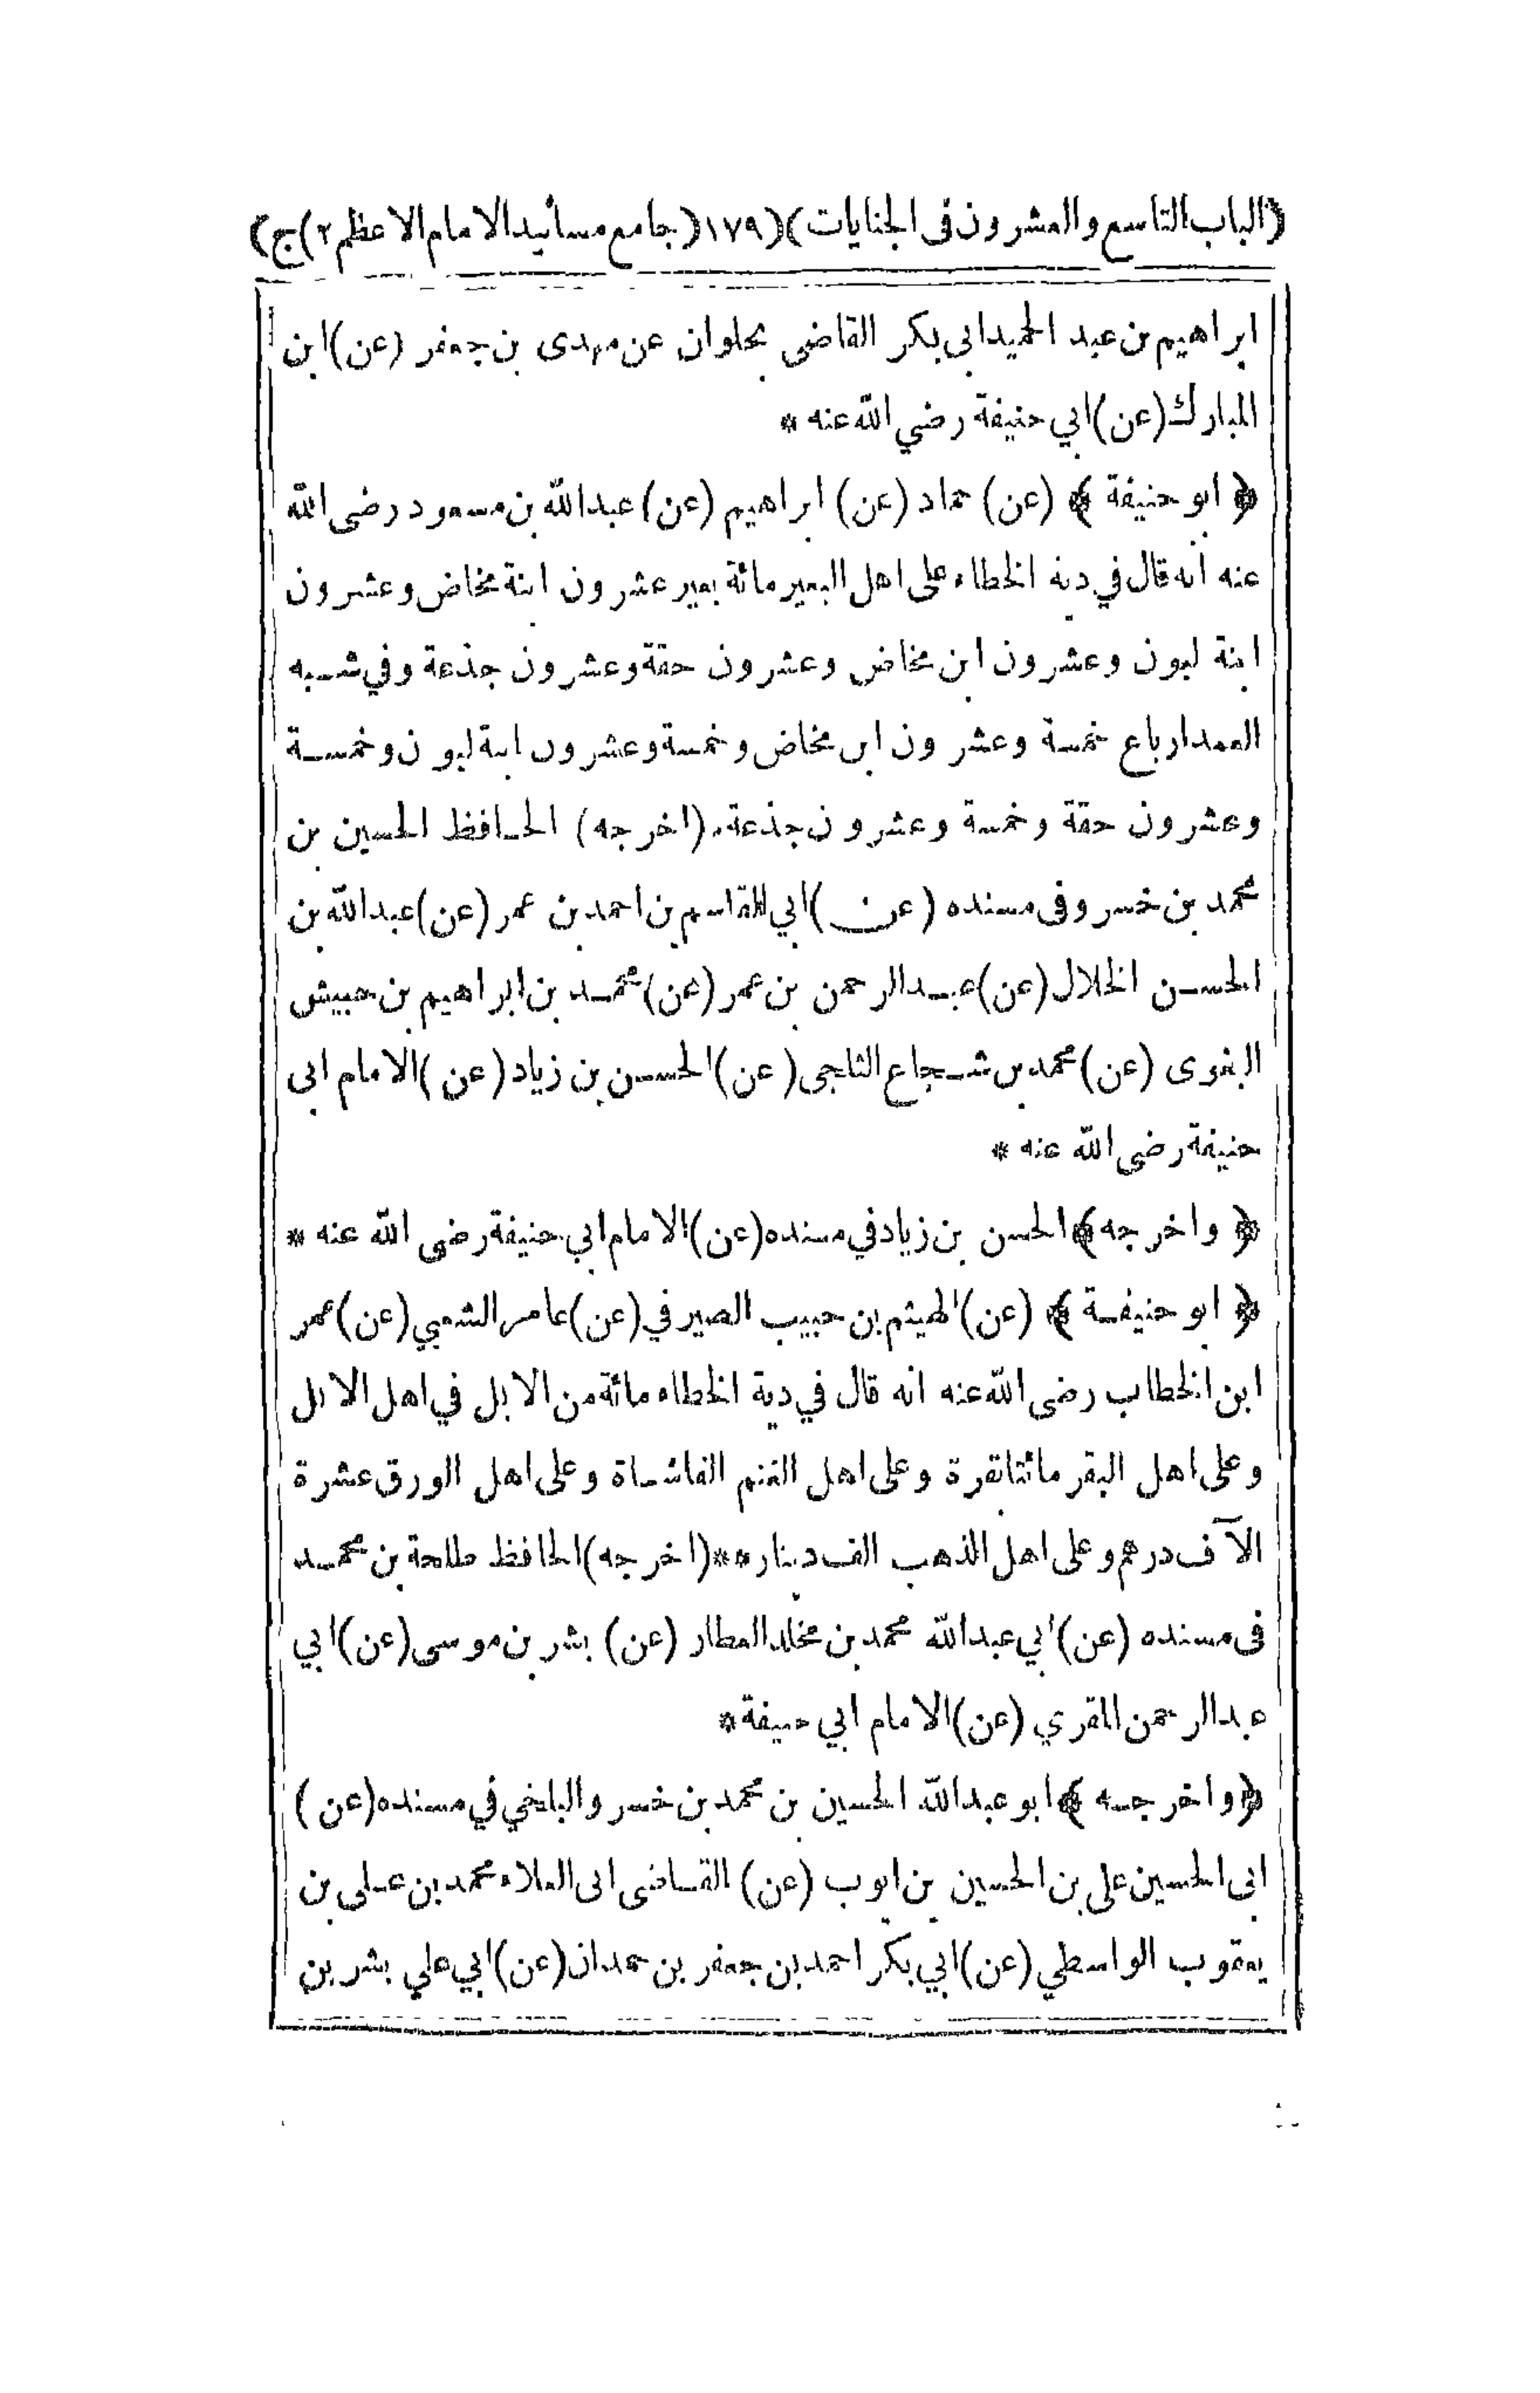 (الباب التاسع والعشرون فى الجنايات) (١٧٩) (جامع مسانيد الامام الاعظم ٢) ج)
ابراهيم بن عبد الحميد ابى بكر القاضى بحلوان عن مهدى بن جعفر (عن) ابن
المبارك (عن) ابي حنيفة رضي الله عنه *
﴿ ابو حنيفة ﴾ (عن) حماد (عن) ابراهيم (عن) عبد الله بن مسعود رضى الله
عنه انه قال في دية الخطاء على اهل البعير مائة بعير عشرون ابنة مخاض وعشرون
ابنة لبون وعشرون ابن مخاض وعشرون حقة وعشرون جذعة وفي شبه
العمد ارباع خمسة وعشرون ابن مخاض وخمسة وعشرون ابنة لبون وخمسة
وعشرون حقة وخمسة وعشرون جذعة * (اخرجه) الحافظ الحسين بن
محمد بن خسرو فى مسنده (عن) ابي القاسم بن احمد بن عمر (عن) عبد الله بن
الحسن الخلال (عن) عبد الرحمن بن عمر (عن) محمد بن ابراهيم بن حبيش
البغوى (عن) محمد بن شجاع الثلجى (عن) الحسن بن زياد (عن) الامام ابى
حنيفة رضى الله عنه *
﴿ واخرجه ﴾ الحسن بن زياد في مسنده (عن) الامام ابي حنيفة رضى الله عنه *
﴿ ابو حنيفة ﴾ (عن) الهيثم بن حبيب الصيرفي (عن) عامر الشعبي (عن) عمر
ابن الخطاب رضى الله عنه انه قال في دية الخطاء مائة من الابل في اهل الابل
وعلى اهل البقر مائتا بقرة وعلى اهل الغنم الفا شاة وعلى اهل الورق عشرة
الآف درهم وعلى اهل الذهب الف دينار ** (اخرجه) الحافظ طلحة بن محمد
فى مسنده (عن) ابي عبد الله محمد بن مخلد العطار (عن) بشر بن موسى (عن) ابي
عبد الرحمن المقري (عن) الامام ابي حنيفة *
﴿ واخرجه ﴾ ابو عبد الله الحسين بن محمد بن خسرو البلخي في مسنده (عن)
ابى الحسين على بن الحسين بن ايوب (عن) القاضى ابى العلاء محمد بن على بن
يعقوب الواسطي (عن) ابي بكر احمد بن جعفر بن حمدان (عن) ابي علي بشر بن